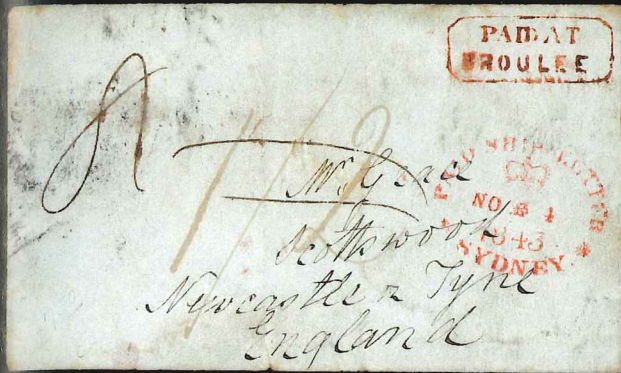 PAID AT
BROULEE
PAID SHIP LETTER
NO 4
1843
SYDNEY
8
1/2
Mr Grace
Scotswood
Newcastle n Tyne
England